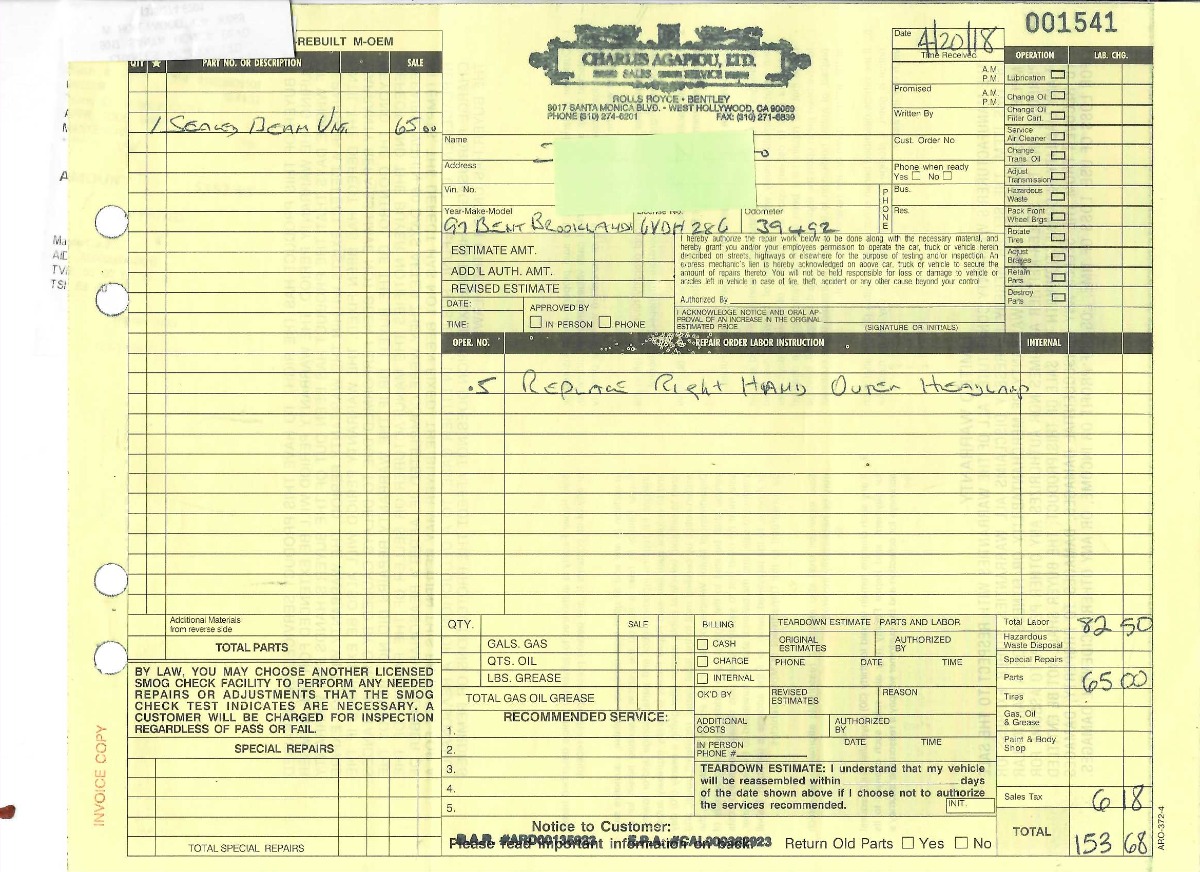 001541
-REBUILT M-OEM
QTY ★ PART NO. OR DESCRIPTION SALE
1 Sealed Beam Unit 65 00
CHARLES AGAPIOU, LTD.
SALES SERVICE
ROLLS ROYCE • BENTLEY
9017 SANTA MONICA BLVD. • WEST HOLLYWOOD, CA 90069
PHONE (310) 274-6201 FAX: (310) 271-6839
Date 4/20/18
Time Received
A.M.
P.M.
Promised A.M.
P.M.
Written By
Cust. Order No
Phone when ready
Yes No
PHONE
Bus.
Res.
Name
Address
Vin. No.
Year-Make-Model License No. Odometer
97 BENT BROOKLANDS 6VDH 286 39492
OPERATION LAB. CHG.
Lubrication
Change Oil
Change Oil
Filter Cart.
Service
Air Cleaner
Change
Trans. Oil
Adjust
Transmission
Hazardous
Waste
Pack Front
Wheel Brgs
Rotate
Tires
Adjust
Brakes
Retain
Parts
Destroy
Parts
ESTIMATE AMT.
ADD'L AUTH. AMT.
REVISED ESTIMATE
DATE:
TIME:
APPROVED BY
IN PERSON PHONE
I hereby authorize the repair work below to be done along with the necessary material, and
hereby grant you and/or your employees permission to operate the car, truck or vehicle herein
described on streets, highways or elsewhere for the purpose of testing and/or inspection. An
express mechanic's lien is hereby acknowledged on above car, truck or vehicle to secure the
amount of repairs thereto. You will not be held responsible for loss or damage to vehicle or
articles left in vehicle in case of fire, theft, accident or any other cause beyond your control
Authorized By
I ACKNOWLEDGE NOTICE AND ORAL AP-
PROVAL OF AN INCREASE IN THE ORIGINAL
ESTIMATED PRICE (SIGNATURE OR INITIALS)
OPER. NO. REPAIR ORDER LABOR INSTRUCTION INTERNAL
.5 REPLACE Right HAND OUTER HEADLAMP
Additional Materials
from reverse side
TOTAL PARTS
BY LAW, YOU MAY CHOOSE ANOTHER LICENSED
SMOG CHECK FACILITY TO PERFORM ANY NEEDED
REPAIRS OR ADJUSTMENTS THAT THE SMOG
CHECK TEST INDICATES ARE NECESSARY. A
CUSTOMER WILL BE CHARGED FOR INSPECTION
REGARDLESS OF PASS OR FAIL.
SPECIAL REPAIRS
TOTAL SPECIAL REPAIRS
INVOICE COPY
QTY. SALE
GALS. GAS
QTS. OIL
LBS. GREASE
TOTAL GAS OIL GREASE
RECOMMENDED SERVICE:
1.
2.
3.
4.
5.
BILLING
CASH
CHARGE
INTERNAL
OK'D BY
TEARDOWN ESTIMATE PARTS AND LABOR
ORIGINAL
ESTIMATES
AUTHORIZED
BY
PHONE DATE TIME
REVISED
ESTIMATES
REASON
ADDITIONAL
COSTS
AUTHORIZED
BY
IN PERSON
PHONE #
DATE TIME
TEARDOWN ESTIMATE: I understand that my vehicle
will be reassembled within days
of the date shown above if I choose not to authorize
the services recommended.
INIT.
Total Labor 82 50
Hazardous
Waste Disposal
Special Repairs
Parts 65 00
Tires
Gas, Oil
& Grease
Paint & Body
Shop
Sales Tax 6 18
TOTAL 153 68
Notice to Customer:
Please read important information on back.
Return Old Parts Yes No
ARO-372-4